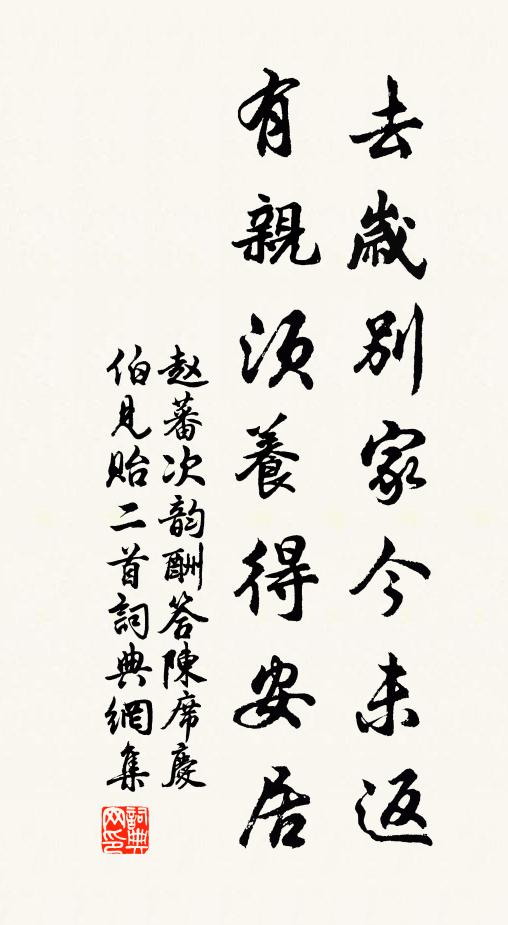 去歲別家今未返
有親須養得安居
赵蕃次韵酬答陳席慶
伯見貽二首詞典網集
詞典
网印